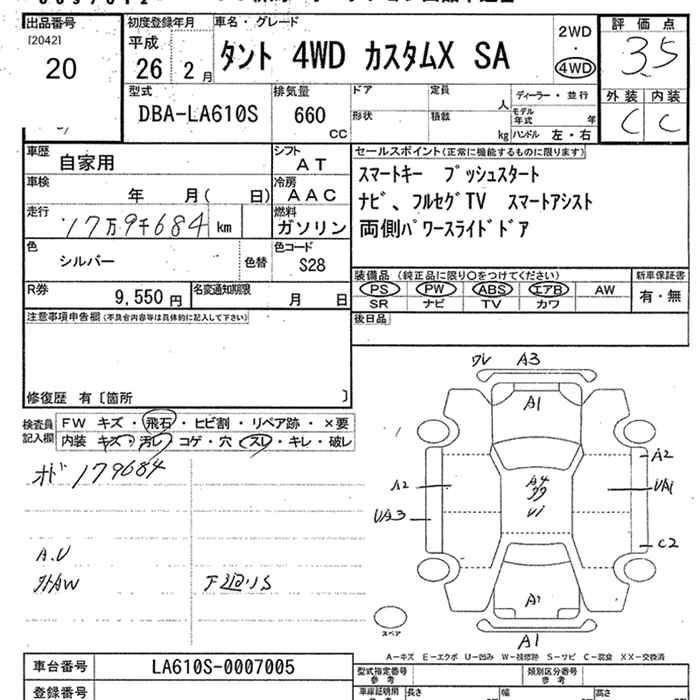 出品番号 初度登録年月 車名・グレード
[2042] 平成 2WD
20 26年 2月 タント 4WD カスタムX SA 4WD
評価点
3.5
外装 内装
C C
型式 排気量 ドア 定員 ディーラー・並行
DBA-LA610S 660 cc 人
形状 積載 モデル年式 年
kg ハンドル 左・右
車歴 自家用 シフト AT
セールスポイント(正常に機能するものに限ります)
スマートキー プッシュスタート
ナビ、フルセグTV スマートアシスト
両側パワースライドドア
車検 年 月( 日) 冷房 AAC
走行 17万9千684 km 燃料 ガソリン
色 シルバー 色替 色コード S28
装備品(純正品に限り○をつけてください) 新車保証書
PS PW ABS エアB AW 有・無
SR ナビ TV カワ
R券 9,550円 名変通知期限 月 日
後日品
注意事項申告欄(不具合内容等は具体的に記入して下さい)
修復歴 有〔箇所 〕
検査員記入欄 FW キズ・飛石・ヒビ割・リペア跡・×要
内装 キズ・汚レ・コゲ・穴・スレ・キレ・破レ
オド 179684
A.U
外AW 下廻りS
ワレ A3
A1
A2
A2 UA1
A4
UA3
C2
A1
スペア
A1
A-キズ E-エクボ U-凹み W-補修跡 S-サビ C-腐食 XX-交換済
車台番号 LA610S-0007005
登録番号
型式指定番号 参考 類別区分番号 参考
長さ 幅 高さ